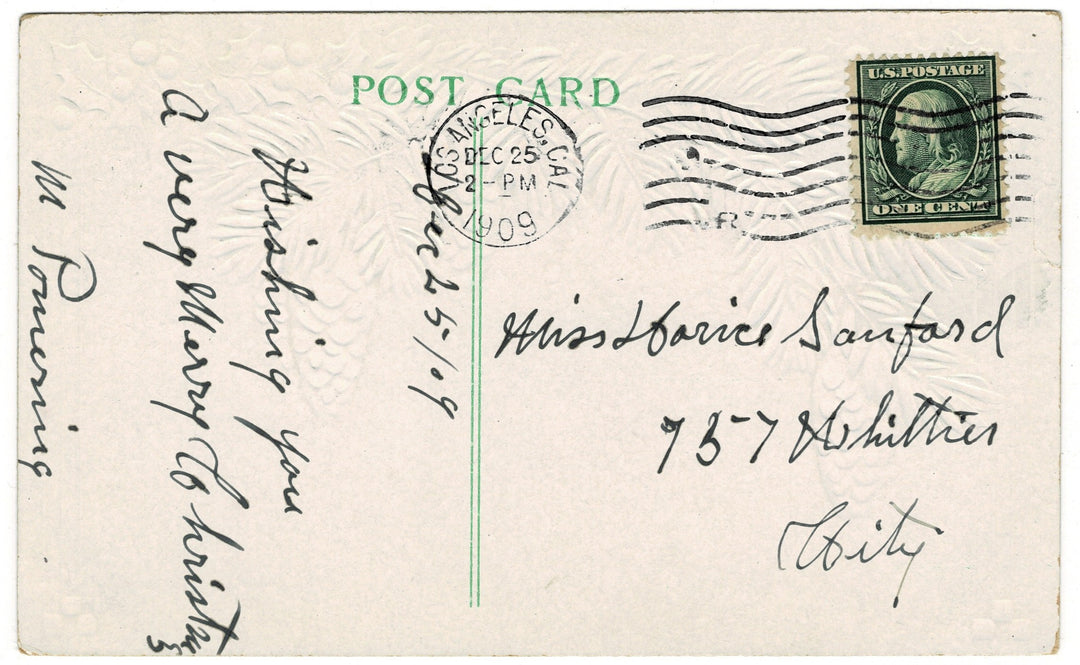 POST CARD
LOS ANGELES, CAL
DEC 25
2 - PM
1909
U.S. POSTAGE
ONE CENT
Dec 25/09
Wishing you
A very Merry Christmas
M
Miss Dorice Sanford
757 Whittier
City